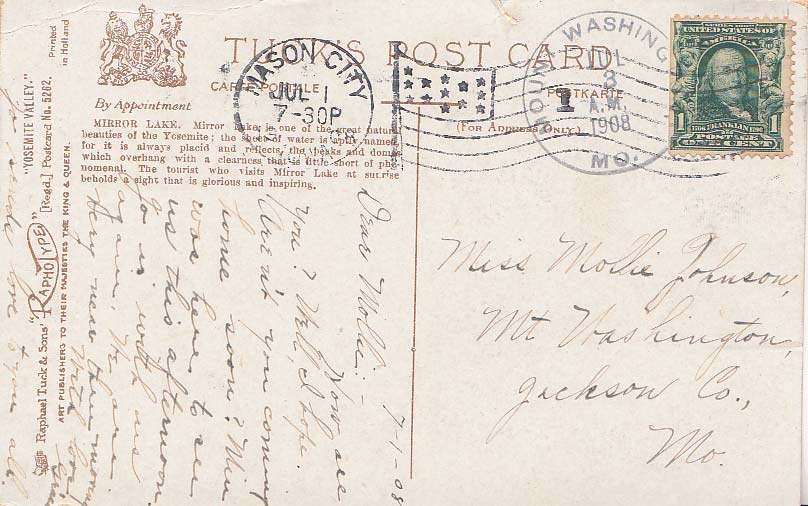 TUCK'S POST CARD
CARTE POSTALE
POSTKARTE
By Appointment
(FOR ADDRESS ONLY)
MIRROR LAKE. Mirror Lake, is one of the great natural
beauties of the Yosemite; the sheet of water is aptly named,
for it is always placid and reflects, the peaks and domes
which overhang with a clearness that is little short of phe-
nomenal. The tourist who visits Mirror Lake at sunrise
beholds a sight that is glorious and inspiring.
MASON CITY
JUL 1
7-30P
MOUNT WASHING
JUL
3
A.M.
1908
MO.
1
UNITED STATES OF
AMERICA
1 1
1706 FRANKLIN 1790
ONE CENT
Miss Mollie Johnson,
Mt Washington,
Jackson Co.,
Mo.
7-1-08
Dear Mollie:-
How are
you? Well, I hope.
Aren't you coming
home soon?
was here to see
us this afternoon.
is with us
again. We are
very near
With love
love to you all.
Raphael Tuck & Sons' "RAPHOTYPE" "YOSEMITE VALLEY."
[Regd.] Postcard No. 5262.
Printed
in Holland
ART PUBLISHERS TO THEIR MAJESTIES THE KING & QUEEN.